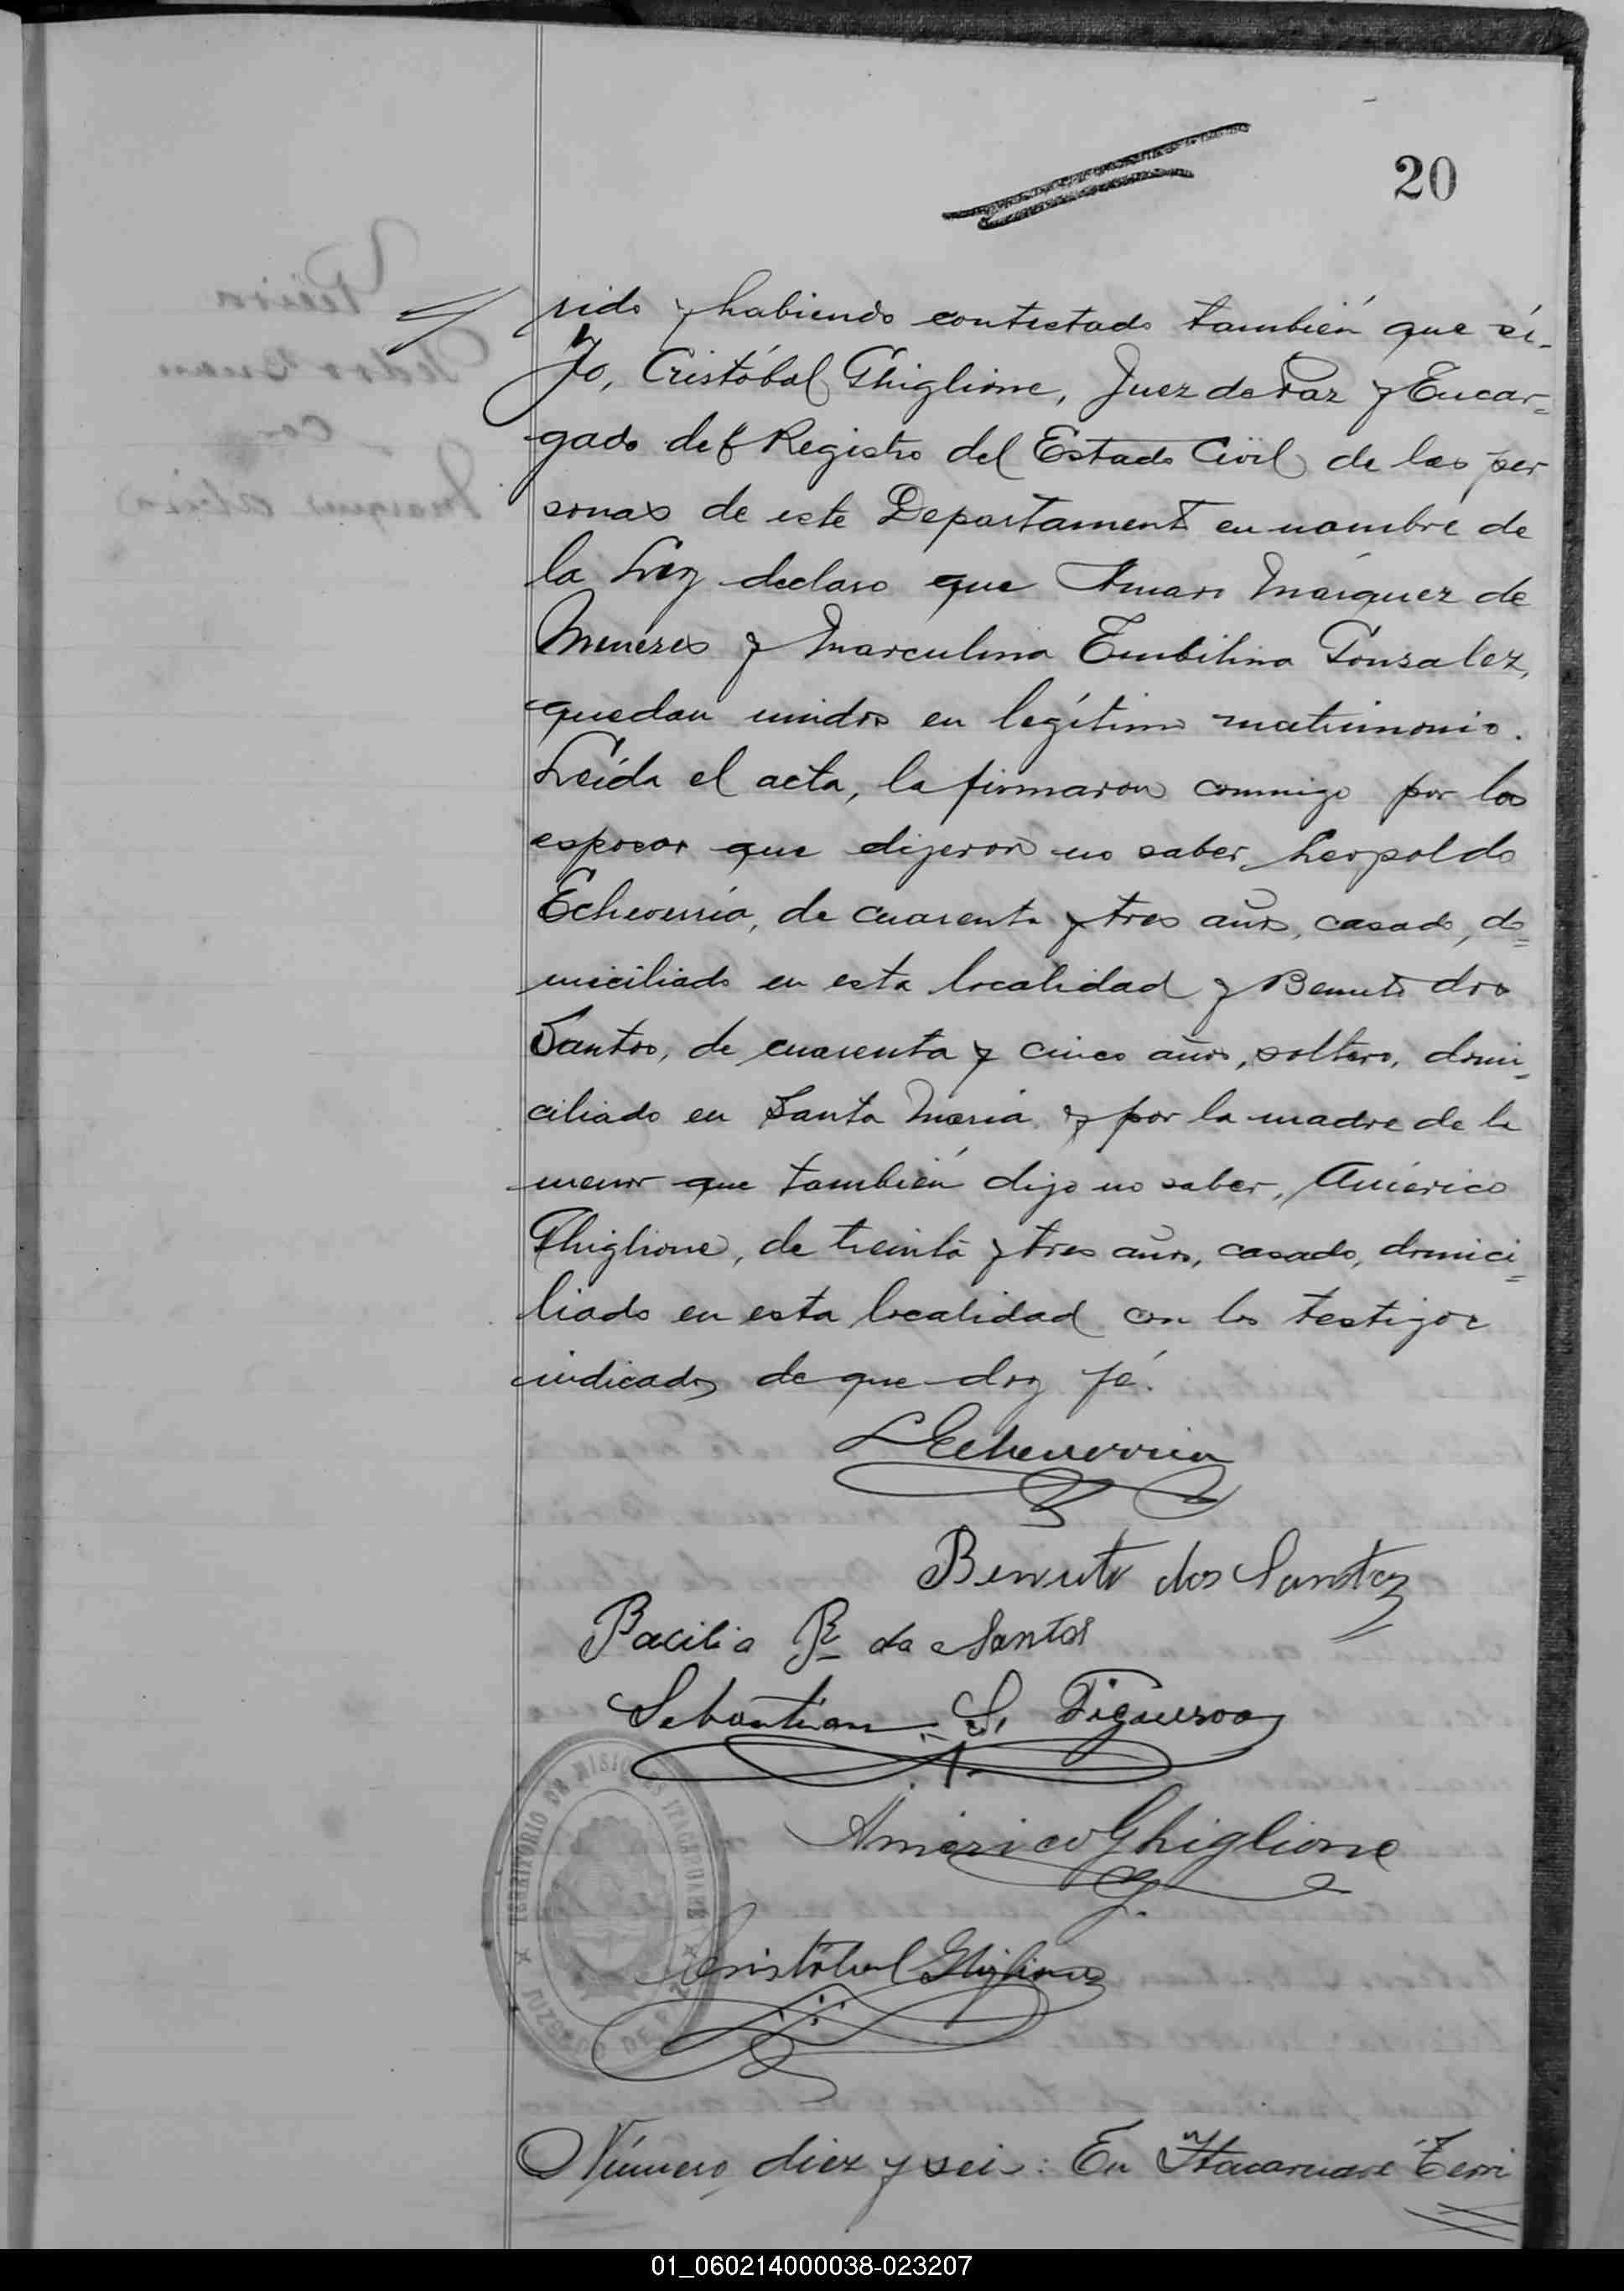 20
rido y habiendo contestado también que sí.
Yo, Cristóbal Ghiglione, Juez de Paz y Encar=
gado del Registro del Estado Civil de las per
sonas de este Departament en nombre de
la Ley declaro que Amaro Márquez de
Meneses y Marculina Gonzalez,
quedan unidos en legítimo matrimonio.
Leída el acta, la firmaron conmigo por los
esposos que dijeron no saber, Leopoldo
Echeverría, de cuarenta y tres años, casado, do=
miciliado en esta localidad y Benuto dos
Santos, de cuarenta y cinco años, soltero, domi=
ciliado en Santa María y por la madre de la
menor que también dijo no saber, Américo
Ghiglione, de treinta y tres años, casado, domici=
liado en esta localidad con los testigos
indicados de que doy fé.
L Echeverria
Benuto dos Santos
Bacilia R da Santos
Sebastian S. Figueroa
Américo Ghiglione
Cristóbal Ghiglione
TERRITORIO DE MISIONES ITACARUARÉ
JUZGADO DE PAZ
Número diez y seis: En Itacaruaré Terri
01_060214000038-023207